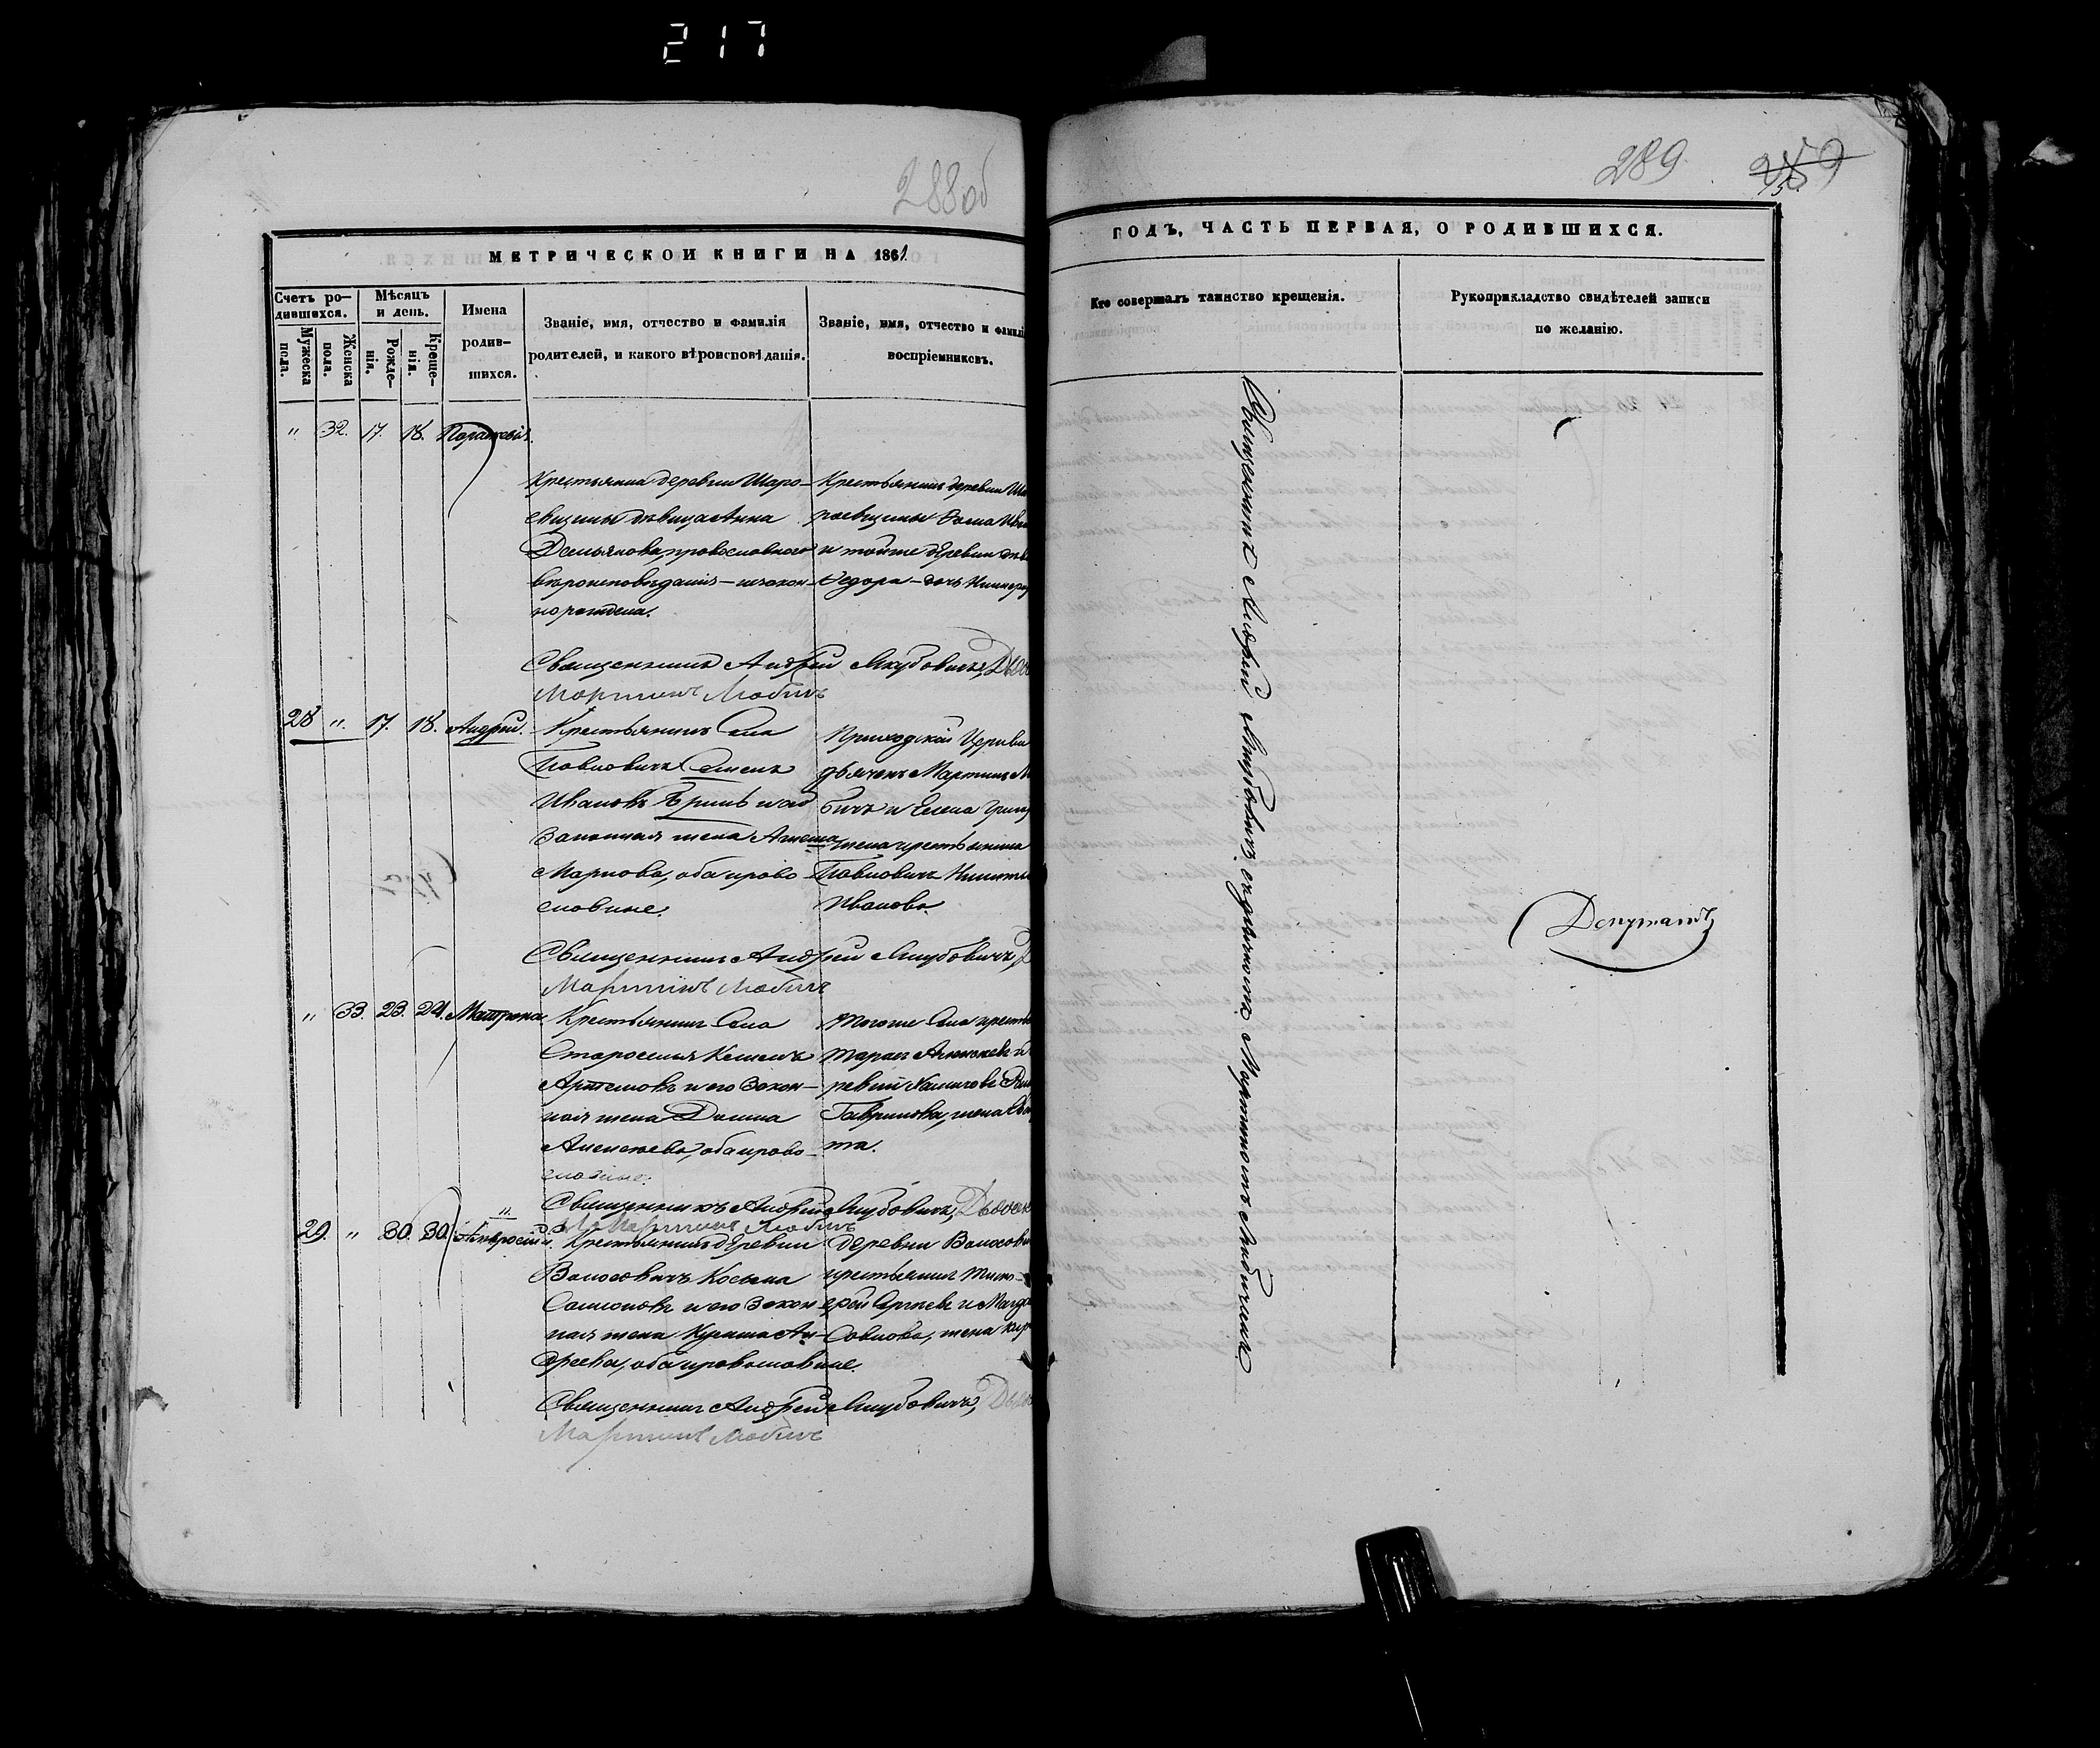 217
288об
МЕТРИЧЕСКОЙ КНИГИ НА 1861
Счетъ ро-
дившихся.
Мужеска
пола.
Женска
пола.
Мѣсяцъ
и день.
Рожде-
нія.
Креще-
нія.
Имена
родив-
шихся.
Званіе, имя, отчество и фамилія
родителей, и какого вѣроисповѣданія.
Званіе, имя, отчество и фамилі
воспріемниковъ.
" 32. 17. 18. Параскевія.
Крестьянка деревни Шаро-
евщины дѣвица Анна
Демьянова, православнаго
вѣроисповѣданія – незакон-
но рождена.
Крестьянинъ деревни Ша
роевщины Ѳома Ива
и тойже деревни дѣв
Ѳедора – дочь
Священникъ Андрей Якубовичъ, Дьяч
Мартинъ Любичъ
28 " 17. 18. Андрей.
Крестьянинъ Села
Павловичъ Семенъ
Ивановъ и его
законная жена
Маркова, оба право-
славные.
Приходской Церкви
дьячекъ Мартинъ Л
бичъ и Елена Григ
жена крестьянина
Павловичъ Никиты
Иванова.
Священникъ Андрей Якубовичъ, Д
Мартинъ Любичъ
" 33. 23. 24. Матрона
Крестьянинъ Села
Староселья
Артемовъ и его закон-
ная жена Домна
Алексеева, оба право-
славные.
Тогоже Села кресть
Тарас Алексеевъ и
Гаврилова, жена
та.
Священникъ Андрей Якубовичъ, Дьячекъ
Мартинъ Любичъ
29. " 30. 30. Амвросій.
Крестьянинъ деревни
Волосовичъ Косьма
Самсоновъ и его закон
ная жена Ан-
дреева, оба православные.
деревни Волосович
крестьянинъ Тимо-
фей Сергѣевъ и Магда
Савлова, жена Кир
Священникъ Андрей Якубовичъ, Дьяч
Мартинъ Любичъ
289
ГОДЪ, ЧАСТЬ ПЕРВАЯ, О РОДИВШИХСЯ.
Кто совершалъ таинство крещенія.
Рукоприкладство свидѣтелей записи
по желанію.
Священникъ Андрей Якубовичъ съ дьячкомъ Мартиномъ Любичемъ
Депутатъ